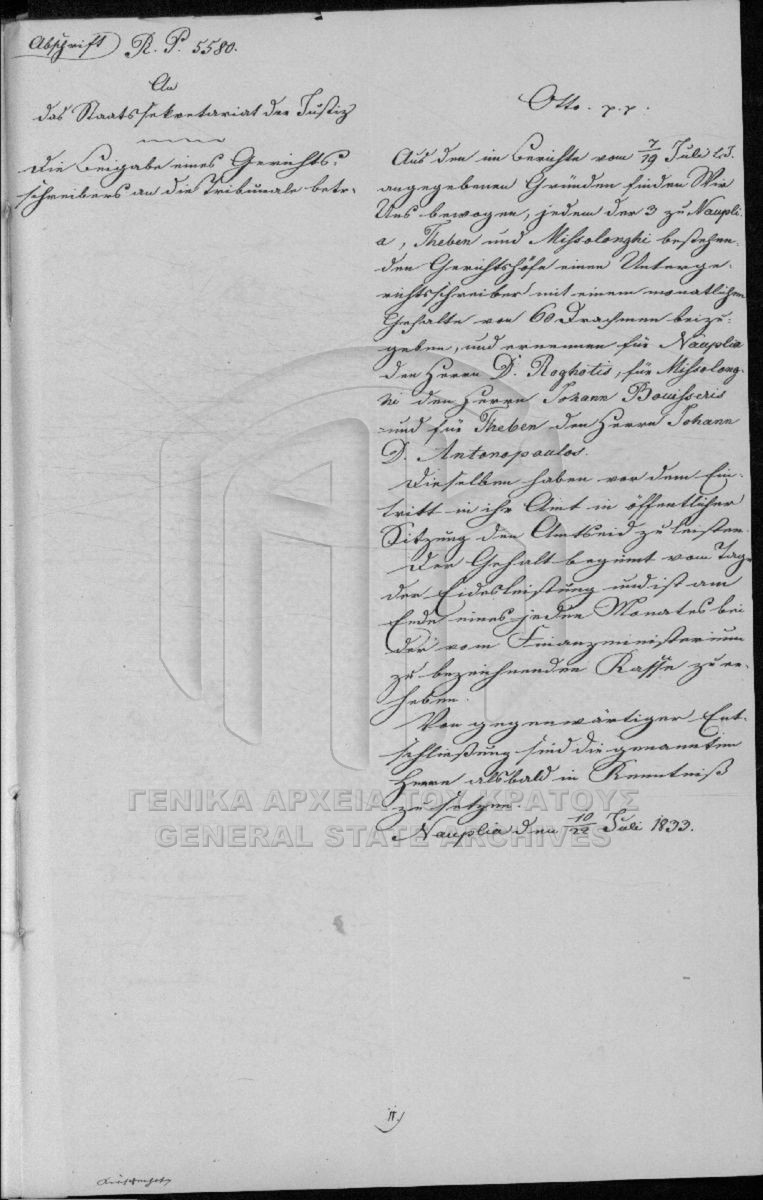 Abschrift R. P. 5580.
An
das Staatssekretariat der Justiz
Die Beigabe eines Gerichts-
schreibers an die Tribunale betr.
Otto. p. p.
Aus den im Berichte vom 7/19 Juli l. J.
angegebenen Gründen finden Wir
Uns bewogen, jedem der 3 zu Naupli-
a, Theben und Missolonghi bestehen-
den Gerichtshöfe einen Unterge-
richtsschreiber mit einem monatlichen
Gehalte von 60 Drachmen beizu-
geben, und ernennen für Nauplia
den Herrn D. Roghotis, für Missolong-
hi den Herrn Johann Bouisseris
und für Theben den Herrn Johann
D. Antonopoulos.
Dieselben haben vor dem Ein-
tritt in ihr Amt in öffentlicher
Sitzung den Amtseid zu leisten.
Der Gehalt beginnt vom Tage
der Eidesleistung und ist am
Ende eines jeden Monates bei
der vom Finanzministerium
zu bezeichnenden Kasse zu er-
heben.
Von gegenwärtiger Ent-
schließung sind die genannten
Herrn alsbald in Kenntniß
zu setzen.
Nauplia den 10/22 Juli 1833.
ΓΕΝΙΚΑ ΑΡΧΕΙΑ ΤΟΥ ΚΡΑΤΟΥΣ
GENERAL STATE ARCHIVES